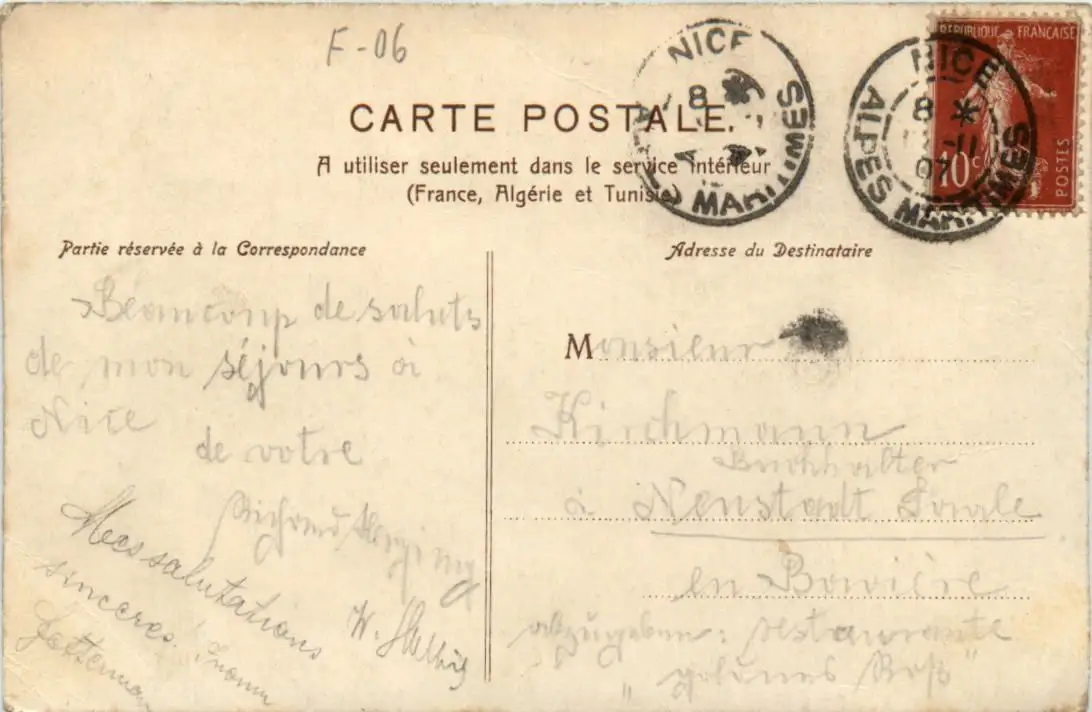 F-06
CARTE POSTALE.
A utiliser seulement dans le service intérieur
(France, Algérie et Tunisie)
NICE
8
ALPES MARITIMES
NICE
8
-11
07
ALPES MARITIMES
REPUBLIQUE FRANÇAISE
10c
POSTES
Partie réservée à la Correspondance
Beaucoup de saluts
de mon séjours à
Nice
de votre
Richard
Mes salutations
sinceres.
W.
Adresse du Destinataire
Monsieur
Kirchmann
Buchhalter
à Neustadt Saale
en Bavière
abzugeben: restaurante
"goldnes Roß"